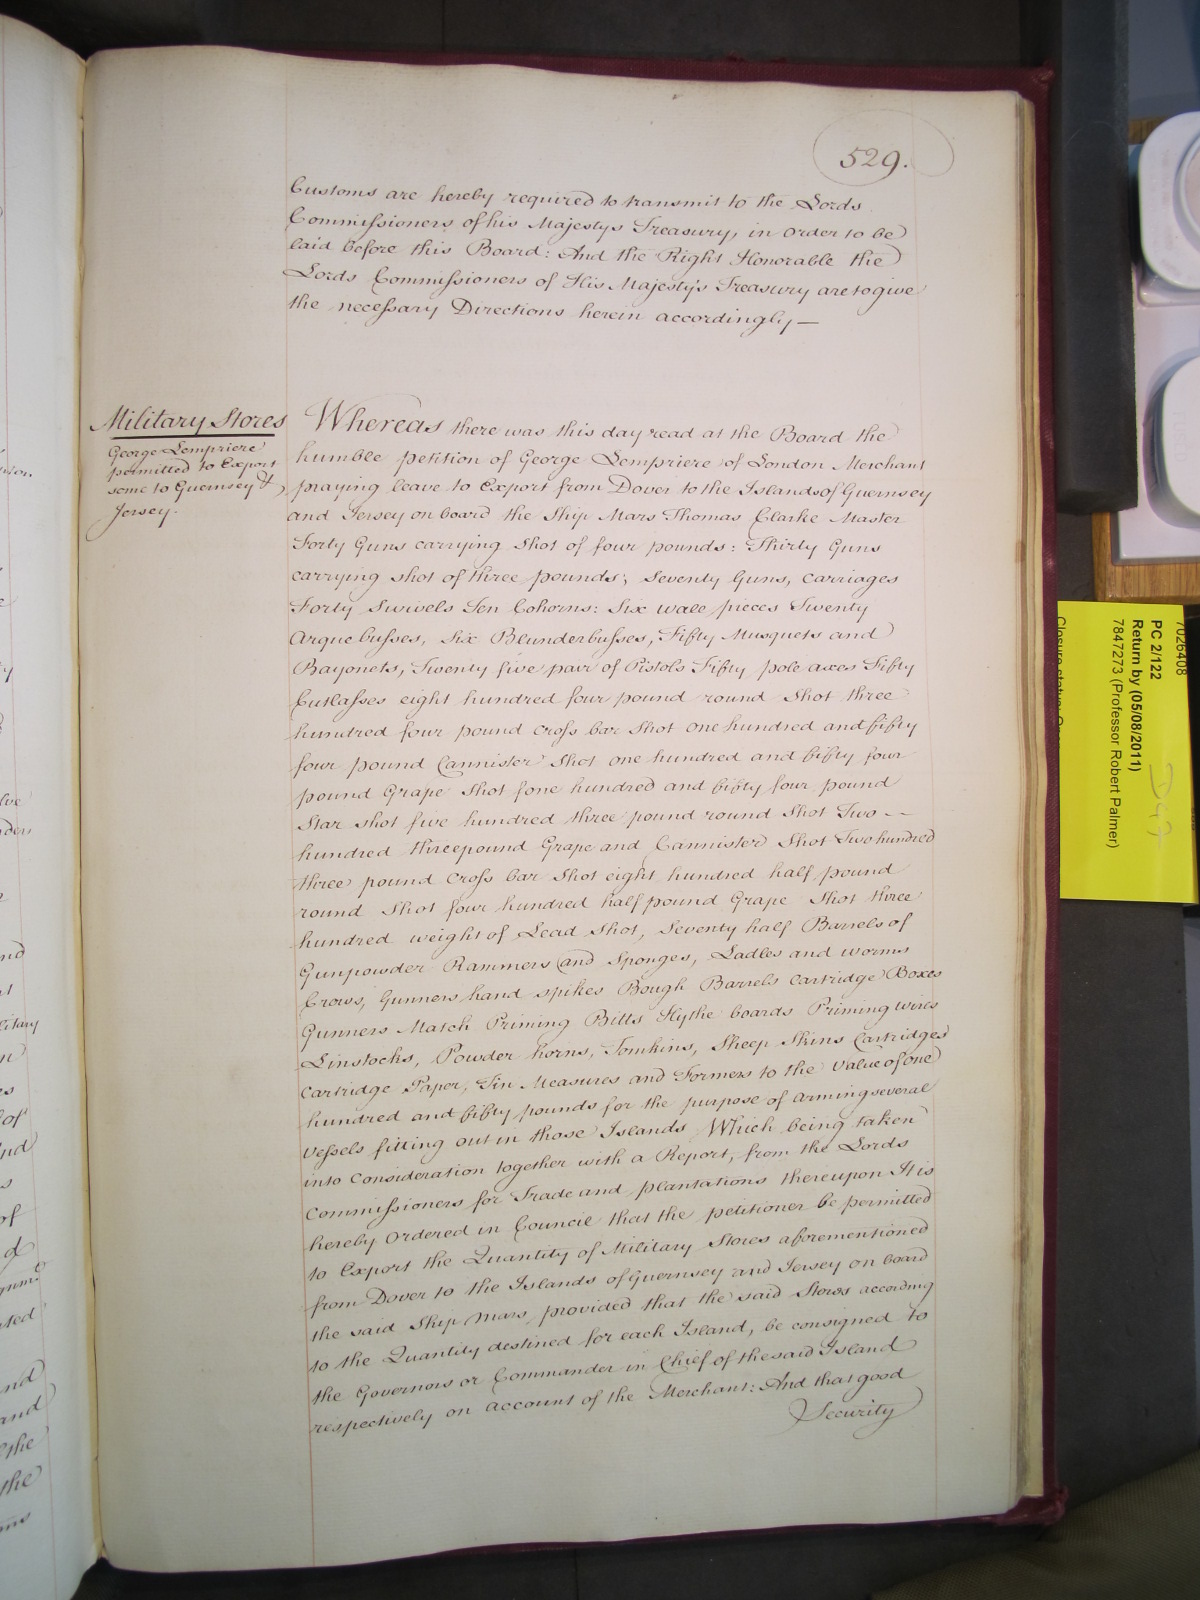 529.
Customs are hereby required to transmit to the Lords
Commissioners of his Majestys Treasury, in order to be
laid before this Board: And the Right Honorable the
Lords Commissioners of His Majesty's Treasury are to give
the necessary Directions herein accordingly —
Military Stores
George Lempriere
permitted to Export
some to Guernsey &
Jersey.
Whereas there was this day read at the Board the
humble petition of George Lempriere of London Merchant
praying leave to Export from Dover to the Islands of Guernsey
and Jersey on board the Ship Mars Thomas Clarke Master
Forty Guns carrying Shot of four pounds: Thirty Guns
carrying shot of three pounds; Seventy Guns, carriages
Forty Swivels Ten Cohorns: Six wall pieces Twenty
Arquebusses, Six Blunderbusses, Fifty Musquets and
Bayonets, Twenty five pair of Pistols Fifty pole axes Fifty
Cutlasses eight hundred four pound round Shot three
hundred four pound cross bar Shot one hundred and fifty
four pound Cannister Shot one hundred and fifty four
pound Grape Shot one hundred and fifty four pound
Star shot five hundred three pound round Shot Two --
hundred three pound Grape and Cannister Shot Two hundred
three pound cross bar Shot eight hundred half pound
round Shot four hundred half pound Grape Shot three
hundred weight of Lead Shot, Seventy half Barrels of
Gunpowder Rammers and Sponges, Ladles and worms
Crows, Gunners hand spikes Bough Barrels Cartridge Boxes
Gunners Match Priming Bitts Hythe boards Priming wires
Linstocks, Powder horns, Tomkins, Sheep Skins Cartridges
Cartridge Paper, Tin Measures and Formers to the Value of one
hundred and fifty pounds for the purpose of arming several
Vessels fitting out in those Islands Which being taken
into Consideration together with a Report, from the Lords
Commissioners for Trade and plantations thereupon It is
hereby Ordered in Council that the petitioner be permitted
to Export the Quantity of Military Stores aforementioned
from Dover to the Islands of Guernsey and Jersey on board
the said Ship Mars, provided that the said Stores according
to the Quantity destined for each Island, be consigned to
the Governors or Commander in Chief of the said Island
respectively on account of the Merchant: And that good
Security
7026408
PC 2/122
Return by (05/08/2011)
7847273 (Professor Robert Palmer)